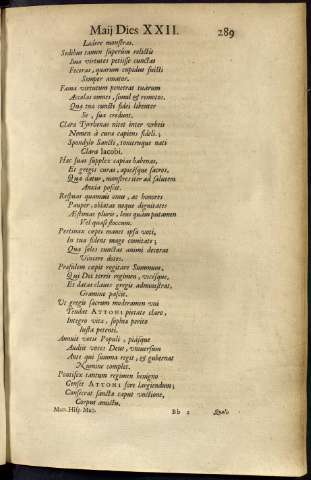 Maij Dies XXII. 289
Ludere monstras.
Sedibus tamen superûm relictis
Suas virtutes petiisse cunctas
Feceras, quarum cupidus fuisti
Semper amator.
Fama virtutum penetras tuarum
Accolas omnes, simul & remotos.
Qua tua cuncti fidei libenter
Se, sua credunt.
Clara Tyrrhenas nitet inter urbeis
Nomen à cura capiens fideli;
Spondylo Sancti, tonitruque nati
Clara Iacobi.
Hæc suas supplex capias habenas,
Et gregis curas, apicesque sacros,
Quo datur, monstres iter ad salutem
Anxia poscit.
Restuas quamuis onus, ac honores
Pauper, oblatas neque dignitates
Æstimas pluris, leue quàm putamen
Vel quasi floccum.
Pertinax coepti manet ipsa voti,
In tua fidens mage comitate;
Qua soles cunctas animi decorat
Vincere dotes.
Præsulem cœpit rogitare Summum,
Qui Dei terris regimen, vicesque,
Et datas claues gregis administrat,
Gramina pascit.
Ut gregis sacrum moderamen uni
Tradat ATTONI pietate claro,
Integro vita, sophia perito
Iusta petenti.
Annuit votis Populi, piasque
Audit voces Deus, universum
Ante qui summa regit, & gubernat
Numine complet.
Pontifex tantum regimen benigno
Censet ATTONI fore largiendum;
Consecrat sancta caput unctione,
Corpus amictu.
Mart. Hisp. Maij. Bb 2 Qualis